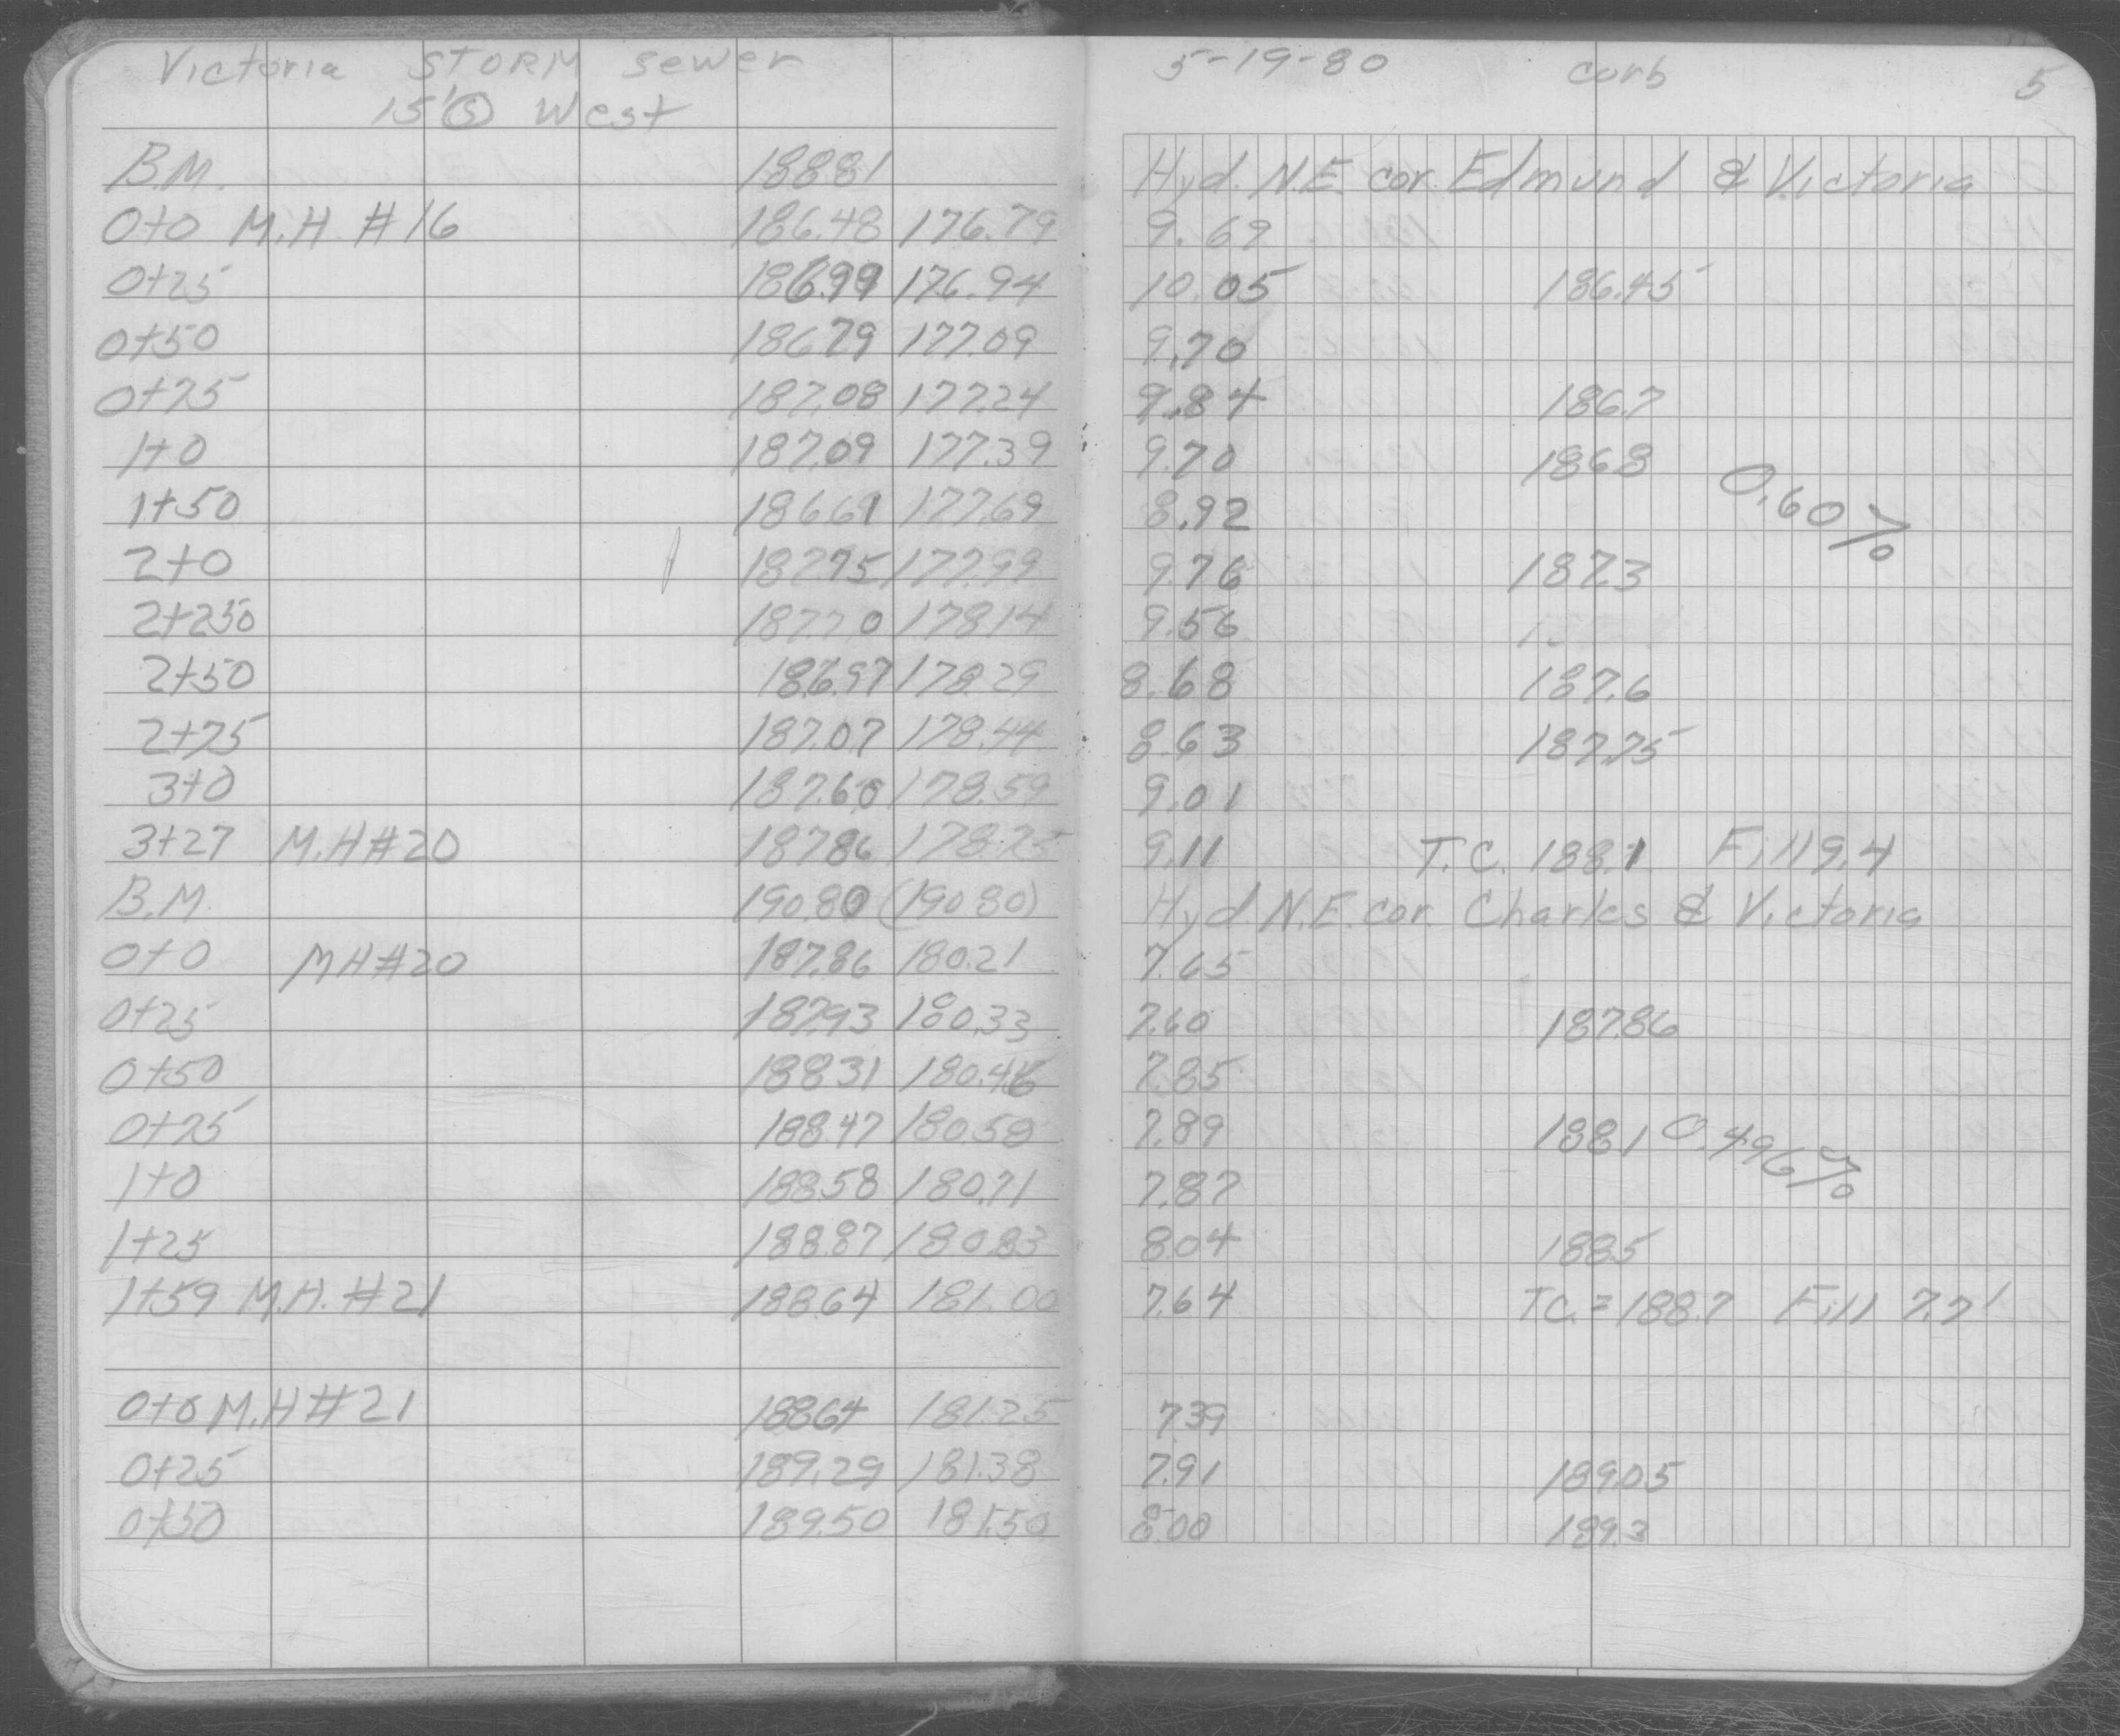 Victoria STORM Sewer 5-19-80 curb 5
15' Ⓢ West
B.M. 188.81 Hyd. N.E. cor. Edmund & Victoria
0+0 M.H. #16 186.48 176.79 9.69
0+25 186.99 176.94 10.05 186.45
0+50 186.79 177.09 9.70
0+75 187.08 177.24 9.84 186.7
1+0 187.09 177.39 9.70 186.8
0.60%
1+50 186.61 177.69 8.92
2+0 187.75 177.99 9.76 187.3
2+250 187.70 178.14 9.56
2+50 186.97 178.29 8.68 187.6
2+75 187.07 178.44 8.63 187.75
3+0 187.60 178.59 9.01
3+27 M.H #20 187.86 178.75 9.11 T.C. 188.1 Fill 9.4
B.M. 190.80 (190.80) Hyd N.E. cor. Charles & Victoria
0+0 MH #20 187.86 180.21 7.65
0+25 187.93 180.33 7.60 187.86
0+50 188.31 180.46 7.85
0+75 188.47 180.58 7.89 188.1 0.496%
1+0 188.58 180.71 7.87
1+25 188.87 180.83 8.04 188.5
1+59 M.H. #21 188.64 181.00 7.64 T.C. = 188.7 Fill 7.7'
0+0 M.H #21 188.64 181.25 7.39
0+25 189.29 181.38 7.91 189.05
0+50 189.50 181.50 8.00 189.3